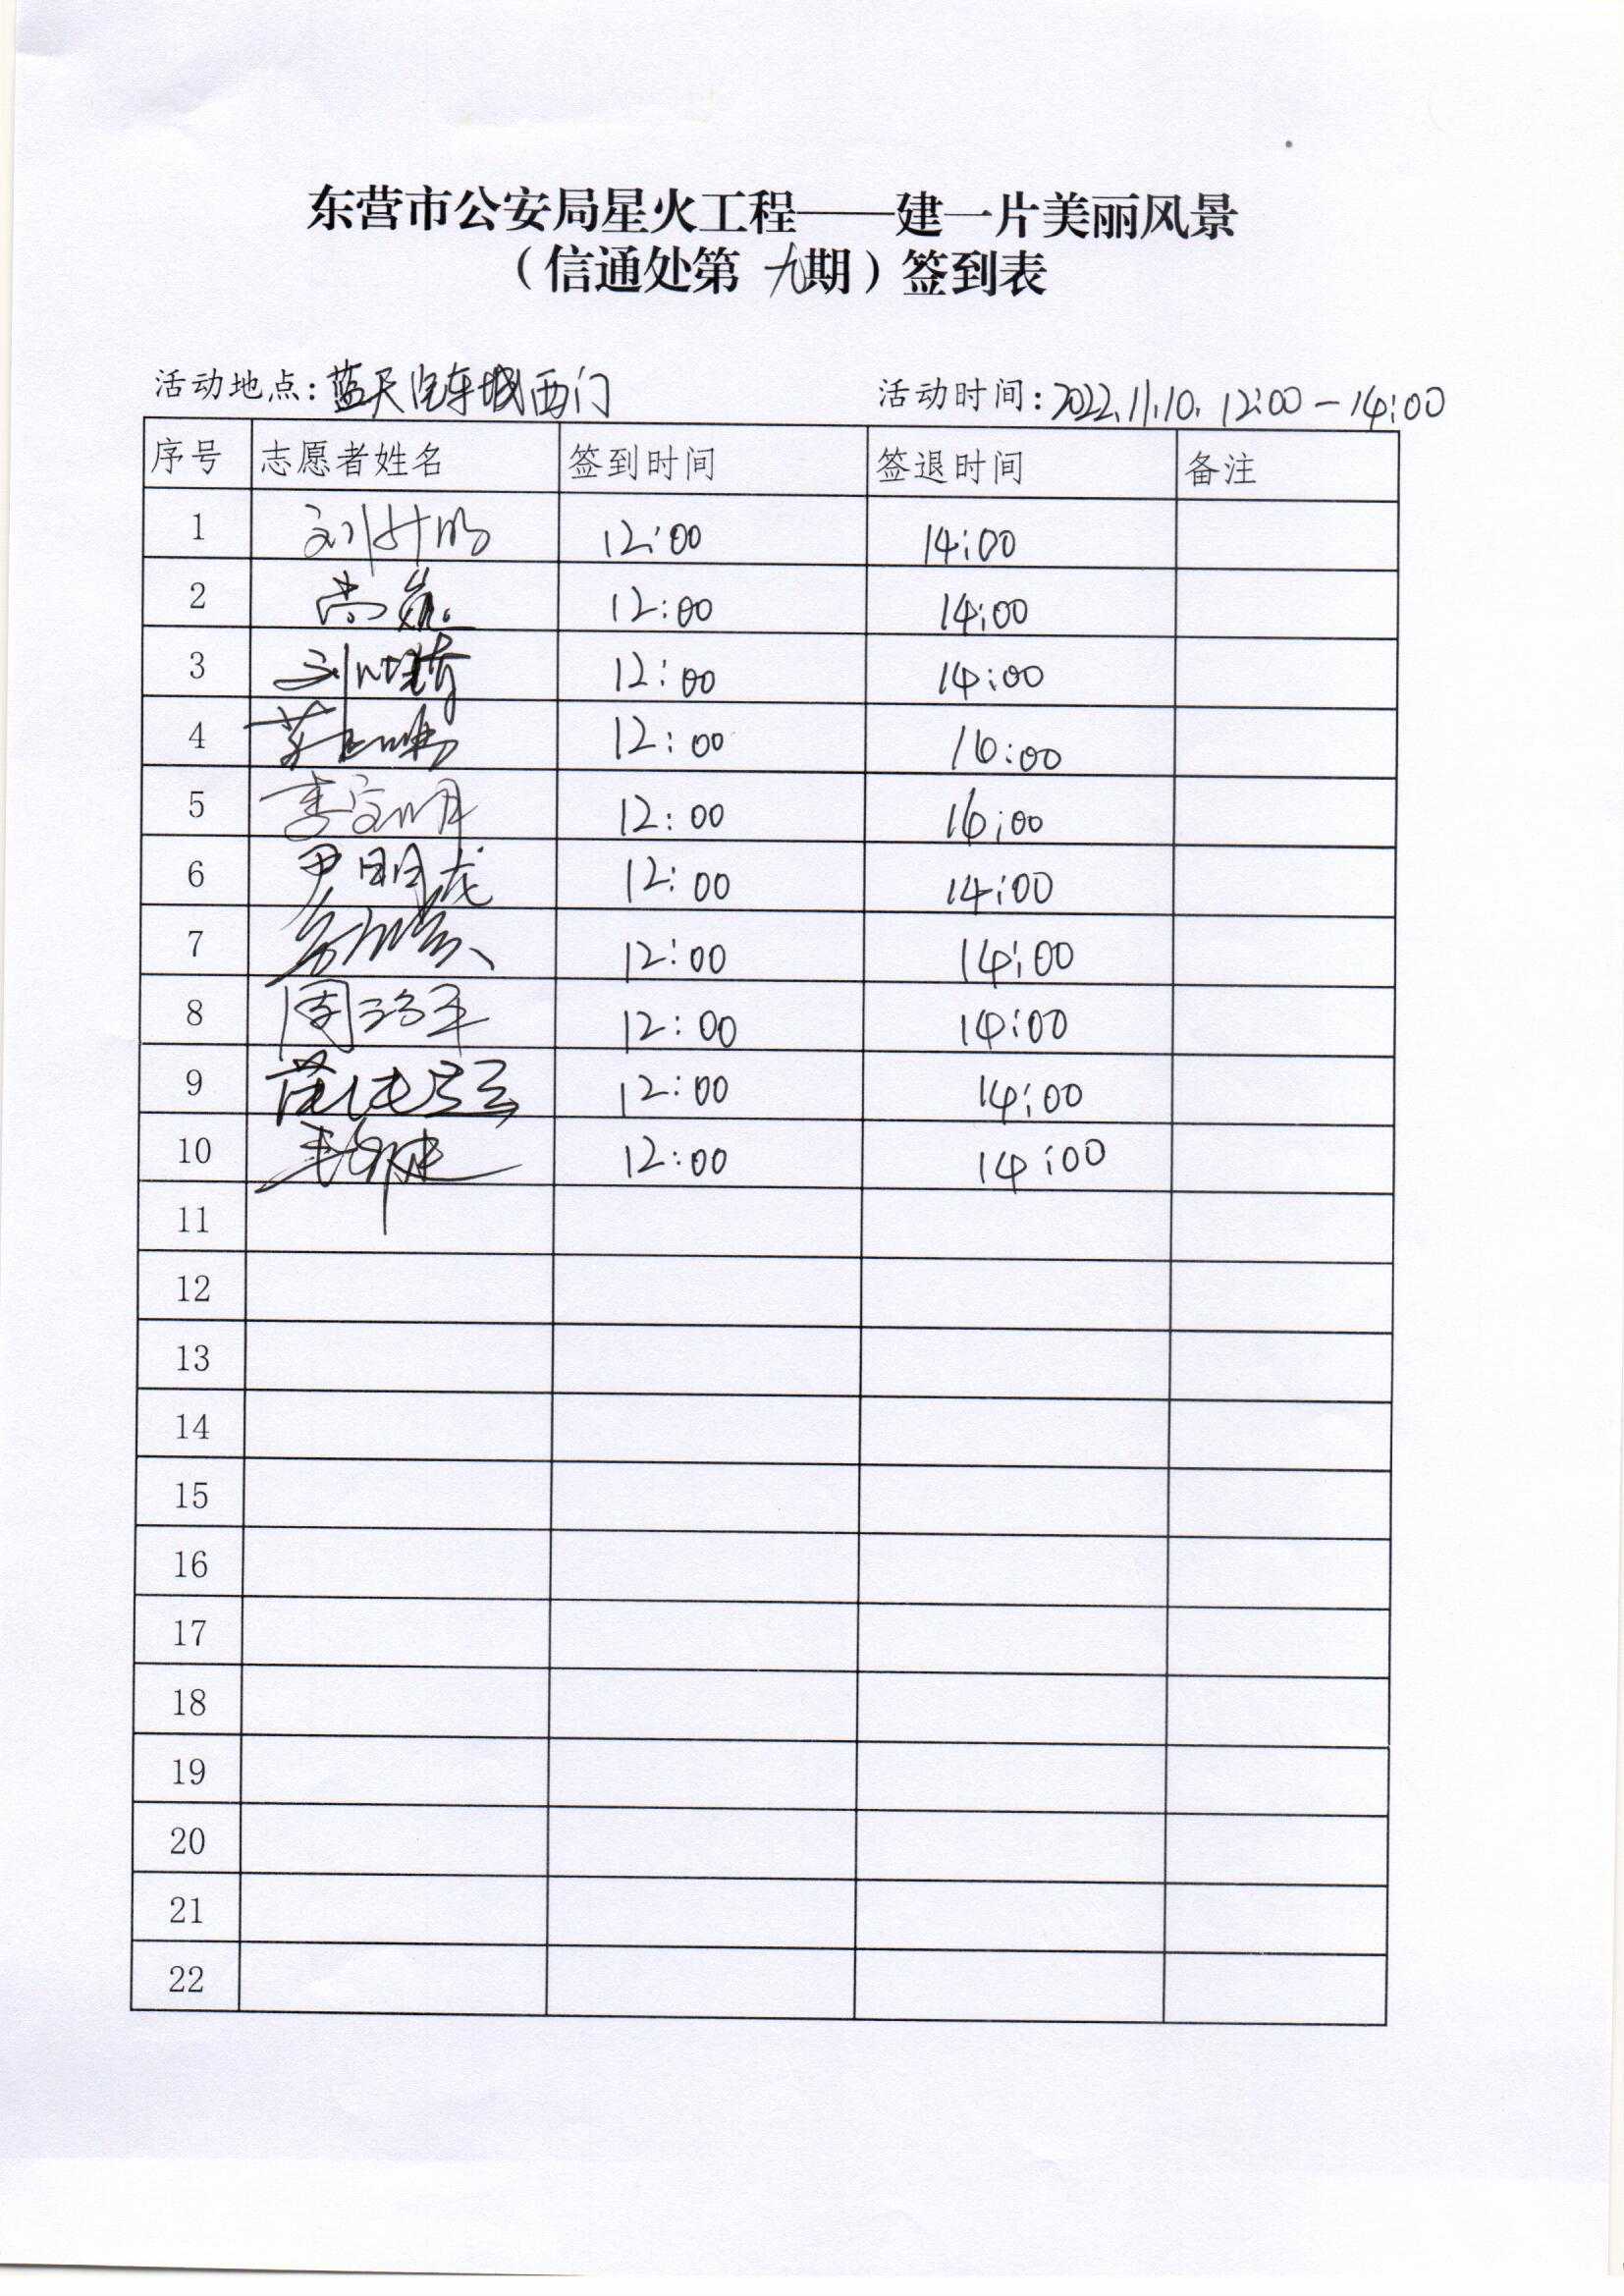 东营市公安局星火工程——建一片美丽风景
（信通处第 九期）签到表
活动地点：蓝天汽车城西门 活动时间：2022.11.10. 12:00－14:00
序号 志愿者姓名 签到时间 签退时间 备注
1 12:00 14:00
2 12:00 14:00
3 12:00 14:00
4 12:00
5 李文明 12:00
6 尹明龙 12:00 14:00
7 12:00 14:00
8 周治平 12:00 14:00
9 12:00 14:00
10 12:00 14:00
11
12
13
14
15
16
17
18
19
20
21
22